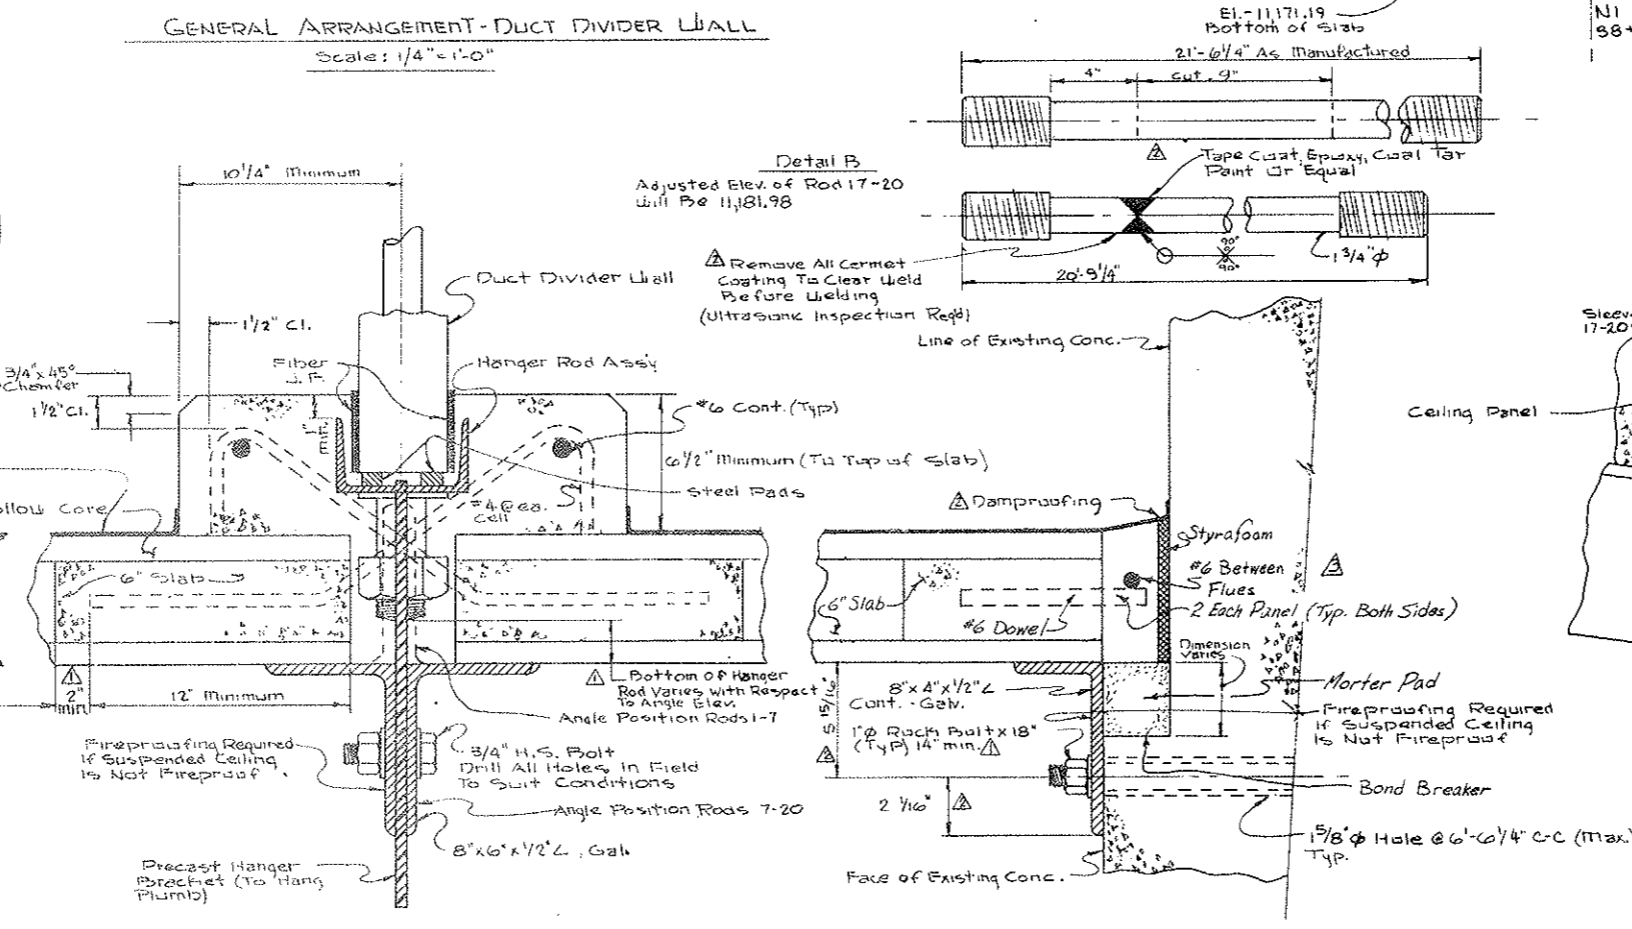 GENERAL ARRANGEMENT-DUCT DIVIDER WALL
Scale: 1/4"=1'-0"
El.-11,171.19
Bottom of Slab
N1
21'-6 1/4" As Manufactured
4"
cut. 9"
Detail B
Adjusted Elev. of Rod 17-20
Will Be 11,181.98
2
Tape Coat, Epoxy, Coal Tar
Paint Or Equal
2 Remove All Cermet
Coating To Clear Weld
Before Welding
(Ultrasonic Inspection Reqd)
90°
90°
1 3/4" φ
20'-9 1/4"
10 1/4" Minimum
Duct Divider Wall
1 1/2" Cl.
Fiber
J. F.
Hanger Rod Ass'y
3/4" x 45°
Chamfer
1 1/2" Cl.
#6 Cont. (Typ)
6 1/2" Minimum (To Top of Slab)
Steel Pads
#4 @ ea.
Cell
Core
6" Slab
1
2"
min.
12" Minimum
1 Bottom Of Hanger
Rod Varies With Respect
To Angle Elev.
Angle Position Rods 1-7
Fireproofing Required
If Suspended Ceiling
Is Not Fireproof
3/4" H.S. Bolt
Drill All Holes In Field
To Suit Conditions
Angle Position Rods 7-20
8" x 6" x 1/2" L, Galv.
Precast Hanger
Bracket (To Hang
Plumb)
Line of Existing Conc.
2 Damproofing
Styrafoam
#6 Between
Flues
3
2 Each Panel (Typ. Both Sides)
6" Slab
#6 Dowel
Dimension
Varies
8" x 4" x 1/2" L
Cont. - Galv.
5 15/16"
2
1" φ Rock Bolt x 18"
(Typ) 14" min. 1
Morter Pad
Fireproofing Required
If Suspended Ceiling
Is Not Fireproof
Bond Breaker
2 1/16" 2
1 5/8" φ Hole @ 6'-6 1/4" C-C (Max.)
Typ.
Face of Existing Conc.
17-20
Ceiling Panel